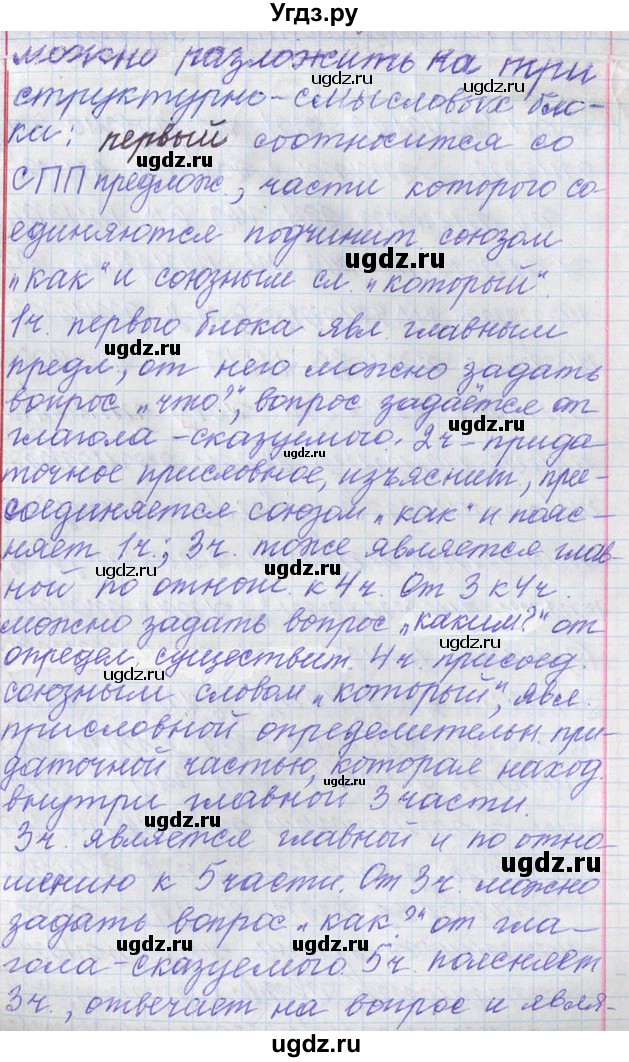 Угдз.ру
можно разложить на три
структурно-смысловых бло-
ка: первый соотносится со
СПП предлож., части которого со
единяются подчинит союзом
„как“ и союзным сл. „который“.
1ч. первого блока явл. главным
предл., от него можно задать
вопрос „что?“, вопрос задаётся от
глагола-сказуемого. 2ч-прида-
точное присловное, изъяснит, при-
соединяется союзом „как“ и пояс-
няет 1ч.; 3ч. тоже является глав-
ной по отнош. к 4ч. От 3 к 4ч.
можно задать вопрос „каким?“ от
определ существит. 4ч. присоед.
союзным словом „который“, явл.
присловной определительн. при-
даточной частью, которая наход.
внутри главной 3 части.
3ч. является главной и по отно-
шению к 5 части. От 3ч. можно
задать вопрос „как?“ от гла-
гола-сказуемого. 5ч. поясняет
3ч., отвечает на вопрос и явля-
ugdz.ru